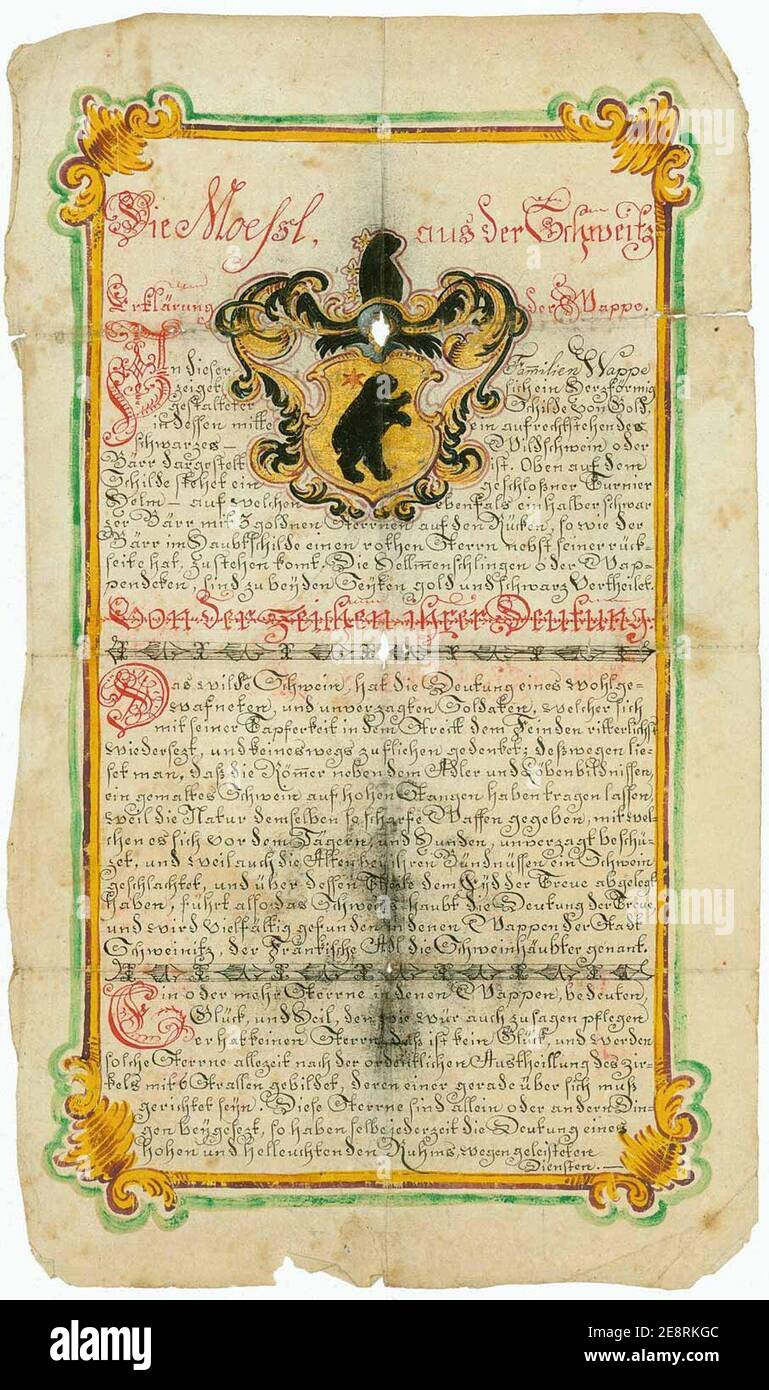 Die Moessl, aus der Schweitz
Erklärung der Wappe.
In dieser Familien Wappe
zeiget sich ein Herzförmig
gestalteter Schilde von Gold,
in dessen mitte ein aufrechstehendes
schwarzes – Wildschwein oder
Bärr dargestelt ist. Oben auf dem
Schilde stehet ein geschloßner Turnier
Helm – auf welchen ebenfals ein halber schwar
zer Bärr mit 3 goldnen Sterrnen auf den Rücken, so wie der
Bärr im Haubtschilde einen rothen Sterrn nebst seiner rück-
seite hat, zustehen komt. Die Hellmenschlingen oder Wap-
pendeken, sind zu beyden Seyten gold und schwarz Vertheilet.
Von der Zeichen ihrer Deutung.
Das wilde Schwein, hat die Deutung eines wohlge-
wafneten, und unverzagten Soldaten, welcher sich
mit seiner Tapferkeit in dem Streitt dem Feinden ritterlichst
wiedersezt, und keineswegs zu flichen gedenket; deßwegen lie-
set man, daß die Römmer neben dem Adler und Löbenbildnissen,
ein gemaltes Schwein auf hohen Stangen haben tragen lassen,
weil die Natur demselben so scharfe Waffen gegeben, mit wel-
chen es sich vor dem Jägern, und Hunden, unverzagt beschü-
zet, und weil auch die Alten bey ihren Bündnüssen ein Schwein
geschlachtet, und über dessen dem Eyd der Treve abgelegt
haben, führt also das Schweins-haubt die Deutung der Treve
und wird vielfältig gefunden in denen Wappen der Stadt
Schweinitz, der Fränkische Adl die Schweinhäubter genant.
Ein oder mehr Sterrne in denen Wappen, bedeuten,
Glück, und Heil, den wie wür auch zusagen pflegen
er hat keinen Sterrn, daß ist kein Glück, und werden
solche Sterrne allezeit nach der ordentlichen Austheillung des Zir-
kels mit 6 Strallen gebildet, deren einer gerade über sich muß
gerichtet seÿn. Diese Sterrne sind allein oder andern Din-
gen beÿgesezt, so haben selbe jederzeit die Deutung eines
hohen und helleuchtenden Ruhms, wegen geleisteten
Diensten.—
alamy
alamy
Image ID: 2E8RKGC
www.alamy.com